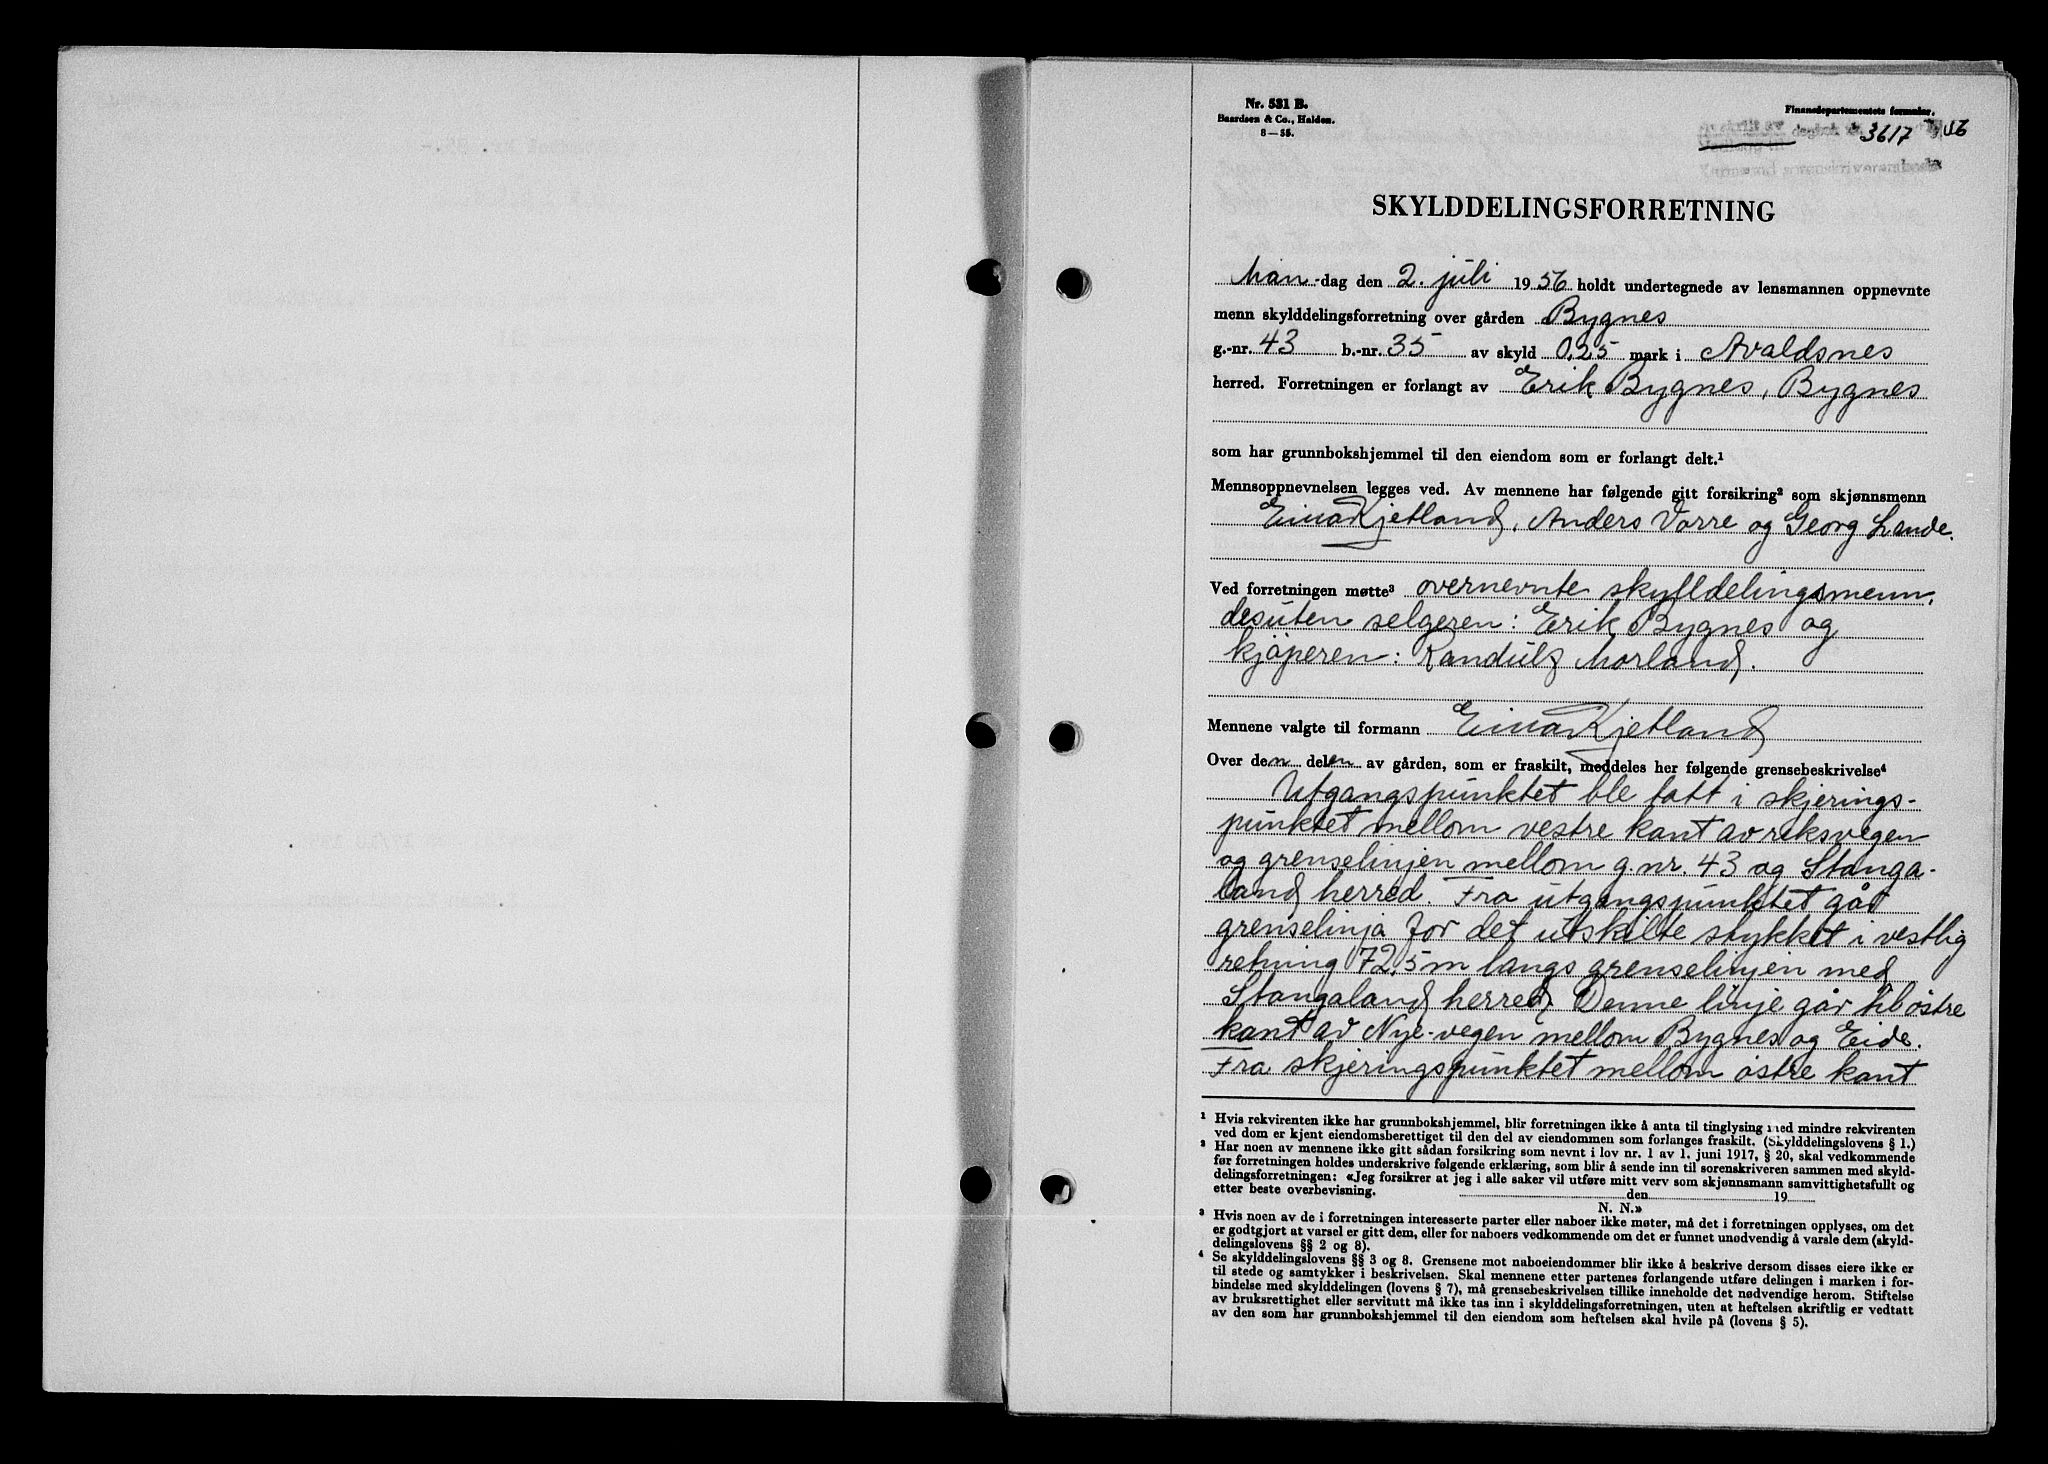 Nr. 531 B.
Baardsen & Co., Halden.
8—55.
Finansdepartementets formular.
Avskrift av dagbok nr. 3617
Karmsund sorenskriverembede
SKYLDDELINGSFORRETNING
Mån-dag den 2. juli 1956 holdt undertegnede av lensmannen oppnevnte
menn skylddelingsforretning over gården Bygnes
g.-nr. 43 b.-nr. 35 av skyld 0,25 mark i Avaldsnes
herred. Forretningen er forlangt av Erik Bygnes, Bygnes
som har grunnbokshjemmel til den eiendom som er forlangt delt.¹
Mennsoppnevnelsen legges ved. Av mennene har følgende gitt forsikring² som skjønnsmenn
Einar Kjetland, Anders Vorre og Georg Lande.
Ved forretningen møtte³ overnevnte skylldelingsmenn,
desuten selgeren: Erik Bygnes og
kjøperen: Randulf Morland.
Mennene valgte til formann Einar Kjetland
Over den delen av gården, som er fraskilt, meddeles her følgende grensebeskrivelse⁴
Utgangspunktet ble tatt i skjerings-
punktet mellom vestre kant av reksvegen
og grenselinjen mellom g.nr. 43 og Stanga-
land herred. Fra utgangspunktet går
grenselinja for det utskilte stykket i vestlig
retning 72,5 m langs grenselinjen med
Stangaland herred. Denne linje går til østre
kant av Nye-vegen mellom Bygnes og Eide.
Fra skjeringspunktet mellom østre kant
¹ Hvis rekvirenten ikke har grunnbokshjemmel, blir forretningen ikke å anta til tinglysing med mindre rekvirenten
ved dom er kjent eiendomsberettiget til den del av eiendommen som forlanges fraskilt. (Skylddelingslovens § 1.)
² Har noen av mennene ikke gitt sådan forsikring som nevnt i lov nr. 1 av 1. juni 1917, § 20, skal vedkommende
før forretningen holdes underskrive følgende erklæring, som blir å sende inn til sorenskriveren sammen med skyld-
delingsforretningen: «Jeg forsikrer at jeg i alle saker vil utføre mitt verv som skjønnsmann samvittighetsfullt og
etter beste overbevisning. den 19
N. N.»
³ Hvis noen av de i forretningen interesserte parter eller naboer ikke møter, må det i forretningen opplyses, om det
er godtgjort at varsel er gitt dem, eller for naboers vedkommende om det er funnet unødvendig å varsle dem (skyld-
delingslovens §§ 2 og 8).
⁴ Se skylddelingslovens §§ 3 og 8. Grensene mot naboeiendommer blir ikke å beskrive dersom disses eiere ikke er
til stede og samtykker i beskrivelsen. Skal mennene etter partenes forlangende utføre delingen i marken i for-
bindelse med skylddelingen (lovens § 7), må grensebeskrivelsen tillike inneholde det nødvendige herom. Stiftelse
av bruksrettighet eller servitutt må ikke tas inn i skylddelingsforretningen, uten at heftelsen skriftlig er vedtatt
av den som har grunnbokshjemmel til den eiendom som heftelsen skal hvile på (lovens § 5).